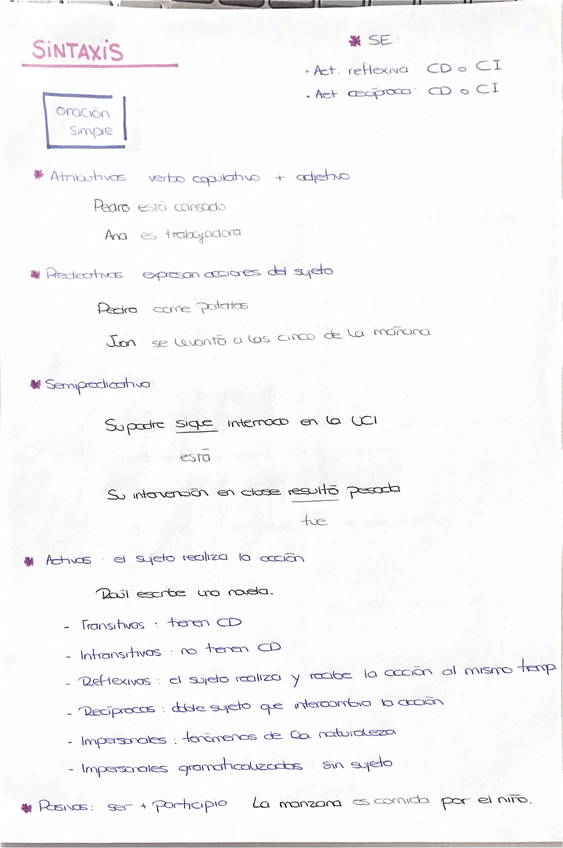 SINTAXIS
* SE:
· Act. reflexiva: CD o CI
· Act. recíproca: CD o CI
oración
simple
* Atributivas: verbo copulativo + adjetivo
Pedro está cansado
Ana es trabajadora
* Predicativas: expresan acciones del sujeto
Pedro come patatas
Jon se levantó a las cinco de la mañana
* Semipredicativa:
Su padre sigue internado en la UCI
está
Su intervención en clase resultó pesada
fue
* Activas: el sujeto realiza la acción
Raúl escribe una novela.
- Transitivas: tienen CD
- Intransitivas: no tienen CD
- Reflexivas: el sujeto realiza y recibe la acción al mismo temp
- Recíprocas: doble sujeto que intercambia la acción
- Impersonales: fenómenos de la naturaleza
- Impersonales gramaticalizadas: sin sujeto
* Pasivas: ser + participio La manzana es comida por el niño.